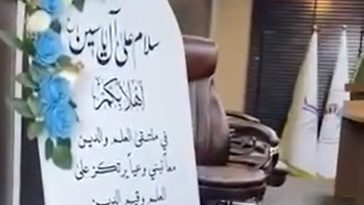 سلام على آل ياسين
أهلا بكم
في ملتقى العلم والدين
معا نبني وعيا يرتكز على
العلم وقيم الدين